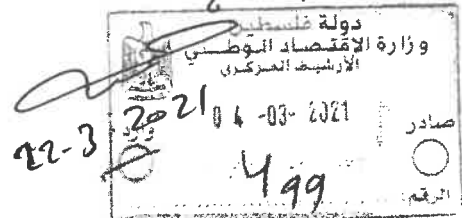 دولة فلسطين
وزارة الإقتصاد الوطني
الأرشيف المركزي
22-3 2021
04 -03- 2021
صادر
وارد
499
الرقم: